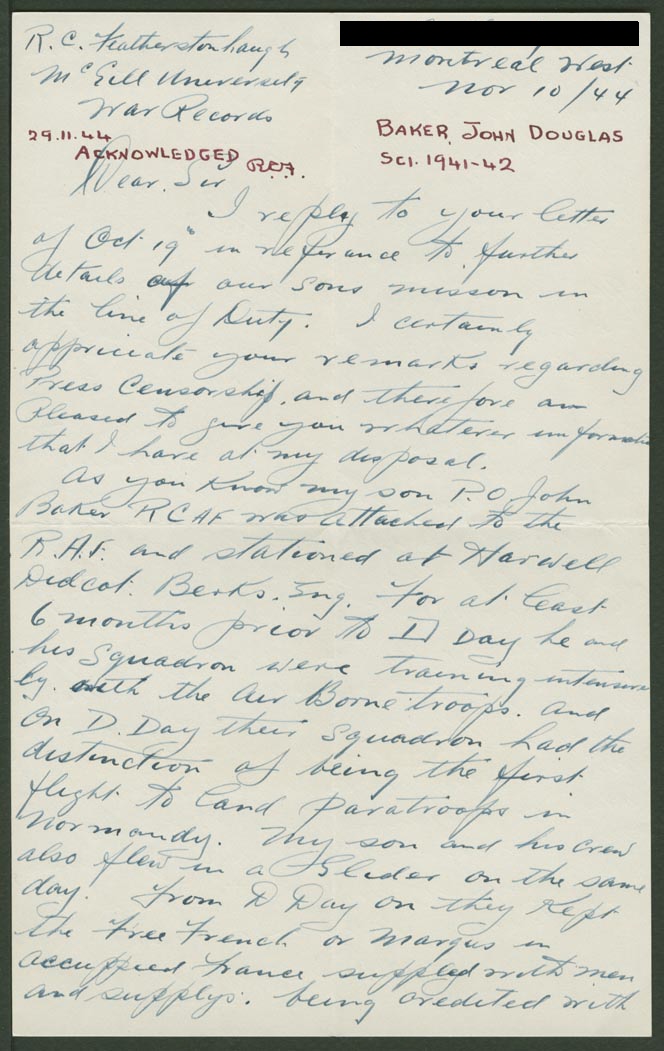 R. C. Featherstonhaugh
McGill University
War Records
Montreal West
Nov 10/44
29.11.44
ACKNOWLEDGED
BAKER, JOHN DOUGLAS
SCI. 1941-42
Dear Sir
I reply to your letter
of Oct 19" in referance to further
details of our sons misson in
the line of Duty. I certainly
appriciate your remarks regarding
Press Censorship, and therefore am
Pleased to give you whatever information
that I have at my disposal.
As you know my son P.O. John
Baker RCAF was attached to the
R.A.F. and stationed at Harwell
Didcot. Berks. Eng. For at least
6 months prior to D Day he and
his Squadron were training intensive
ly with the Air Borne troops. And
on D. Day their Squadron had the
distinction of being the first
flight to land Paratroops in
Normandy. My son and his crew
also flew in a Glider on the same
day. From D Day on they kept
the Free French or Marquis in
occuppied France supplied with men
and supplys. being credited with